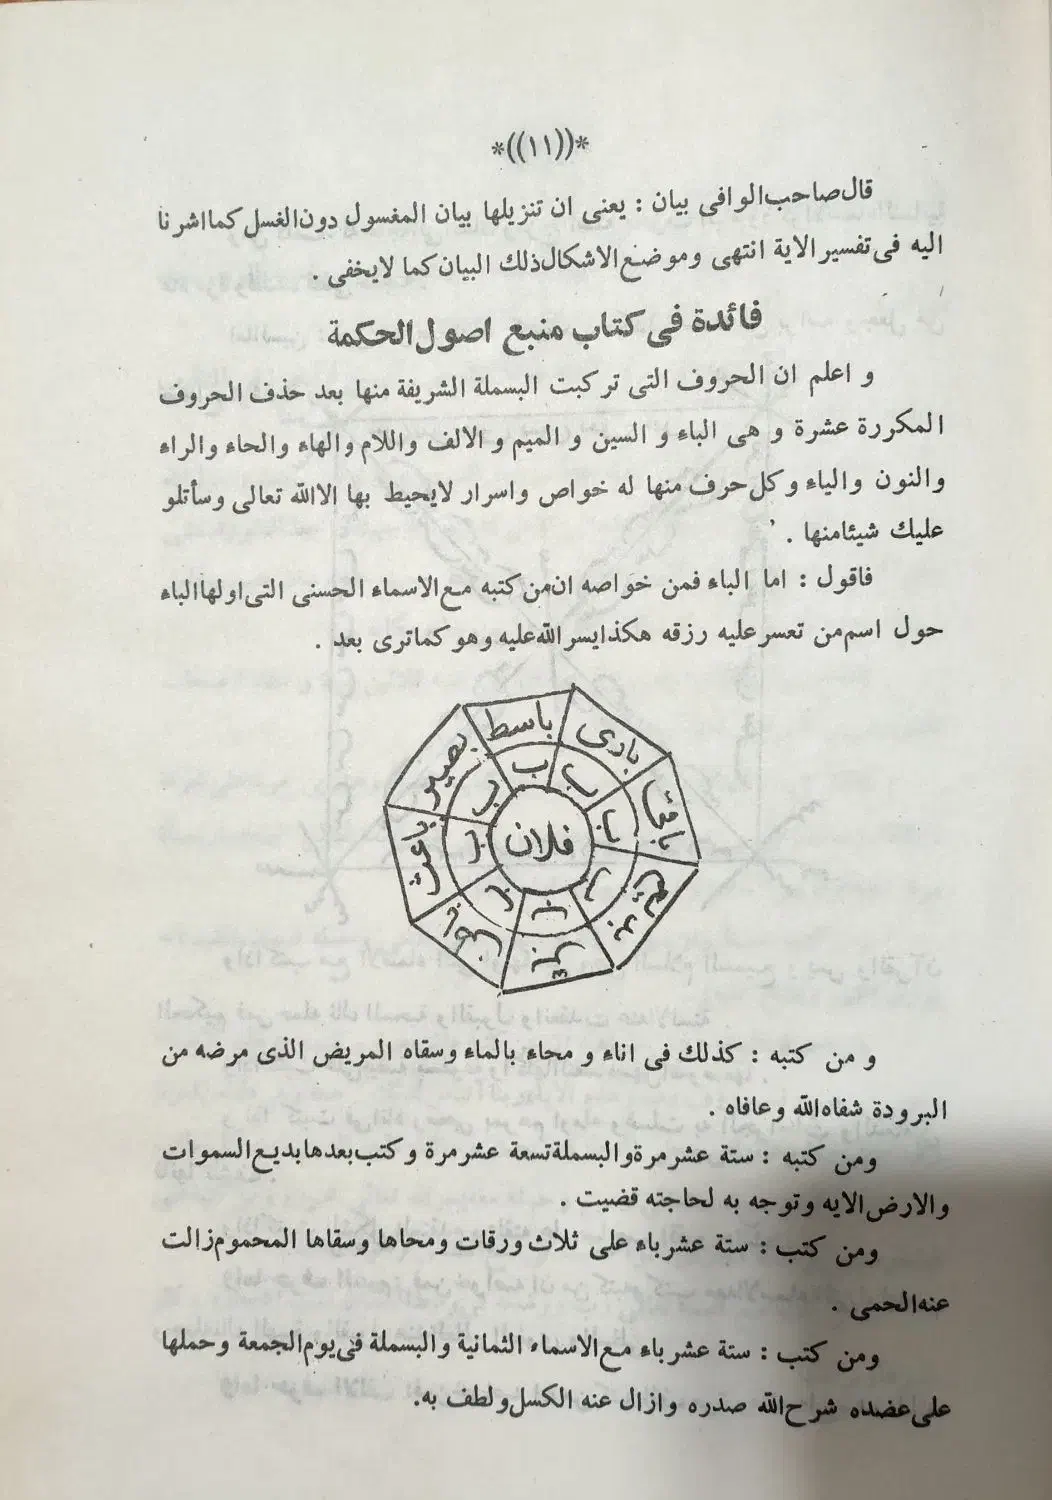 *((١١))*
قال صاحب الوافى بيان : يعنى ان تنزيلها بيان المغسول دون الغسل كما اشرنا
اليه فى تفسير الاية انتهى وموضع الاشكال ذلك البيان كما لايخفى .
فائدة فى كتاب منبع اصول الحكمة
و اعلم ان الحروف التى تركبت البسملة الشريفة منها بعد حذف الحروف
المكررة عشرة و هى الباء و السين و الميم و الالف واللام والهاء والحاء والراء
والنون والياء وكل حرف منها له خواص واسرار لايحيط بها الاالله تعالى وسأتلو
عليك شيئا منها .
فاقول : اما الباء فمن خواصه ان من كتبه مع الاسماء الحسنى التى اولها الباء
حول اسم من تعسر عليه رزقه هكذا يسر الله عليه وهو كماترى بعد .
باسط
بارى
باقى
بديع
بر
باطن
باعث
بصير
ب
ب
ب
ب
ب
ب
ب
ب
فلان
و من كتبه : كذلك فى اناء و محاء بالماء وسقاه المريض الذى مرضه من
البرودة شفاه الله وعافاه .
ومن كتبه : ستة عشر مرة والبسملة تسعة عشر مرة وكتب بعدها بديع السموات
والارض الايه وتوجه به لحاجته قضيت .
ومن كتب : ستة عشر باء على ثلاث ورقات ومحاها وسقاها المحموم زالت
عنه الحمى .
ومن كتب : ستة عشر باء مع الاسماء الثمانية والبسملة فى يوم الجمعة وحملها
على عضده شرح الله صدره وازال عنه الكسل ولطف به.